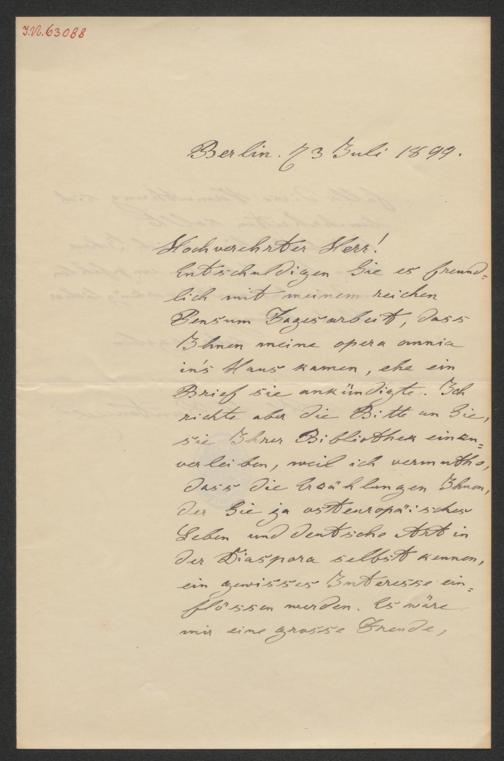 J.N. 63088
Berlin. 73 Juli 1899.
Hochverehrter Herr!
Entschuldigen Sie es freund-
lich mit meinem reichen
Pensum Tagesarbeit, dass
Ihnen meine opera omnia
in's Haus kamen, ehe ein
Brief sie ankündigte. Ich
richte aber die Bitte an Sie,
sie Ihrer Bibliothek einzu-
verleiben, weil ich vermuthe,
dass die Erzählungen Ihnen,
der Sie ja osteuropäisches
Leben und deutsche Art in
der Diaspora selbst kennen,
ein gewisses Interesse ein-
flössen werden. Es wäre
mir eine grosse Freude,